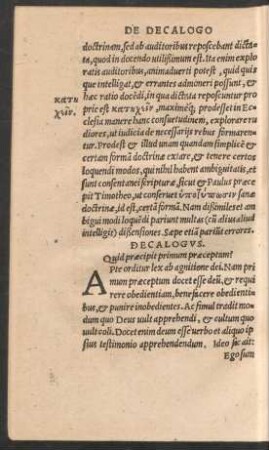 DE DECALOGO
doctrinam, sed ab auditoribus reposcebant dictata, quod in docendo utilissimum est. Ita enim explo
ratis auditoribus, animaduerti potest, quid quisque intelligat, & errantes admoneri possunt, &
hac ratio docēdi, in qua dictata reposcuntur pro
κατη
χῶν.
prie est κατηχῶν, maximéq; prodesset in Ecclesia manere hanc consuetudinem, explorare rudiores, ut iudicia de necessarijs rebus formarentur. Prodest & illud unam quandam simplicē &
certam formā doctrinæ exiare, & tenere certos
loquendi modos, qui nihil habent ambiguitatis, et
sunt consentanei scripturæ, sicut & Paulus præcepit Timotheo, ut conseruet ὑποτύπωσιν sanæ
doctrinæ, id est, certā formā. Nam dissimiles et ambigui modi loquēdi pariunt multas (cū alius aliud
intelligit) dissensiones. Sæpe etiā pariūt errores.
DECALOGVS.
Quid præcipit primum præceptum?
Apte orditur lex ab agnitione dei. Nam primum præceptum docet esse deū, & requirere obedientiam, benefacere obedientibus, & punire inobedientes. Ac simul tradit modum quo Deus uult apprehendi, & cultum quo
uult coli. Docet enim deum esse uerbo et aliquo ipsius testimonio apprehendendum. Ideo sic ait:
Ego sum